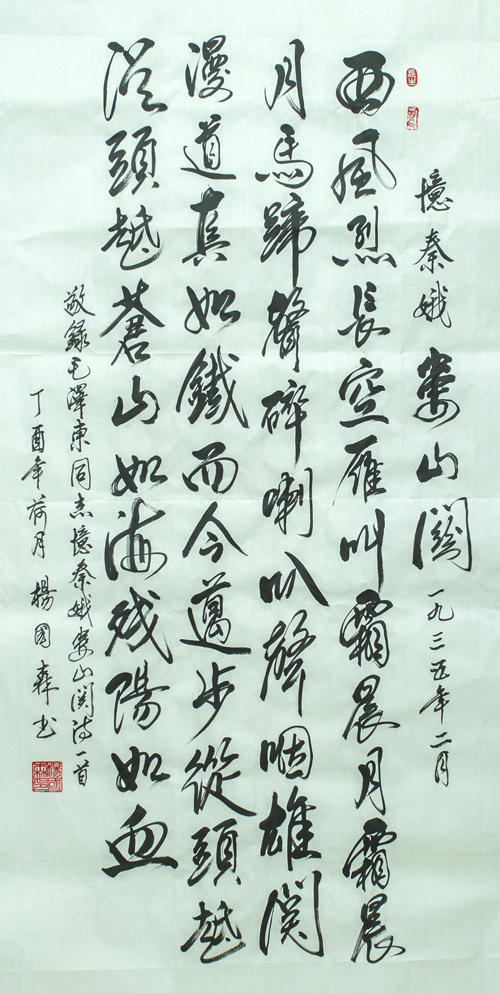 憶秦娥 婁山關 一九三五年二月
西風烈長空雁叫霜晨月霜晨
月馬蹄聲碎喇叭聲咽雄関
漫道真如鐵而今邁步從頭越
從頭越蒼山如海残陽如血
敬録毛澤東同志憶秦娥婁山関詩一首
丁酉年荷月 楊國 书